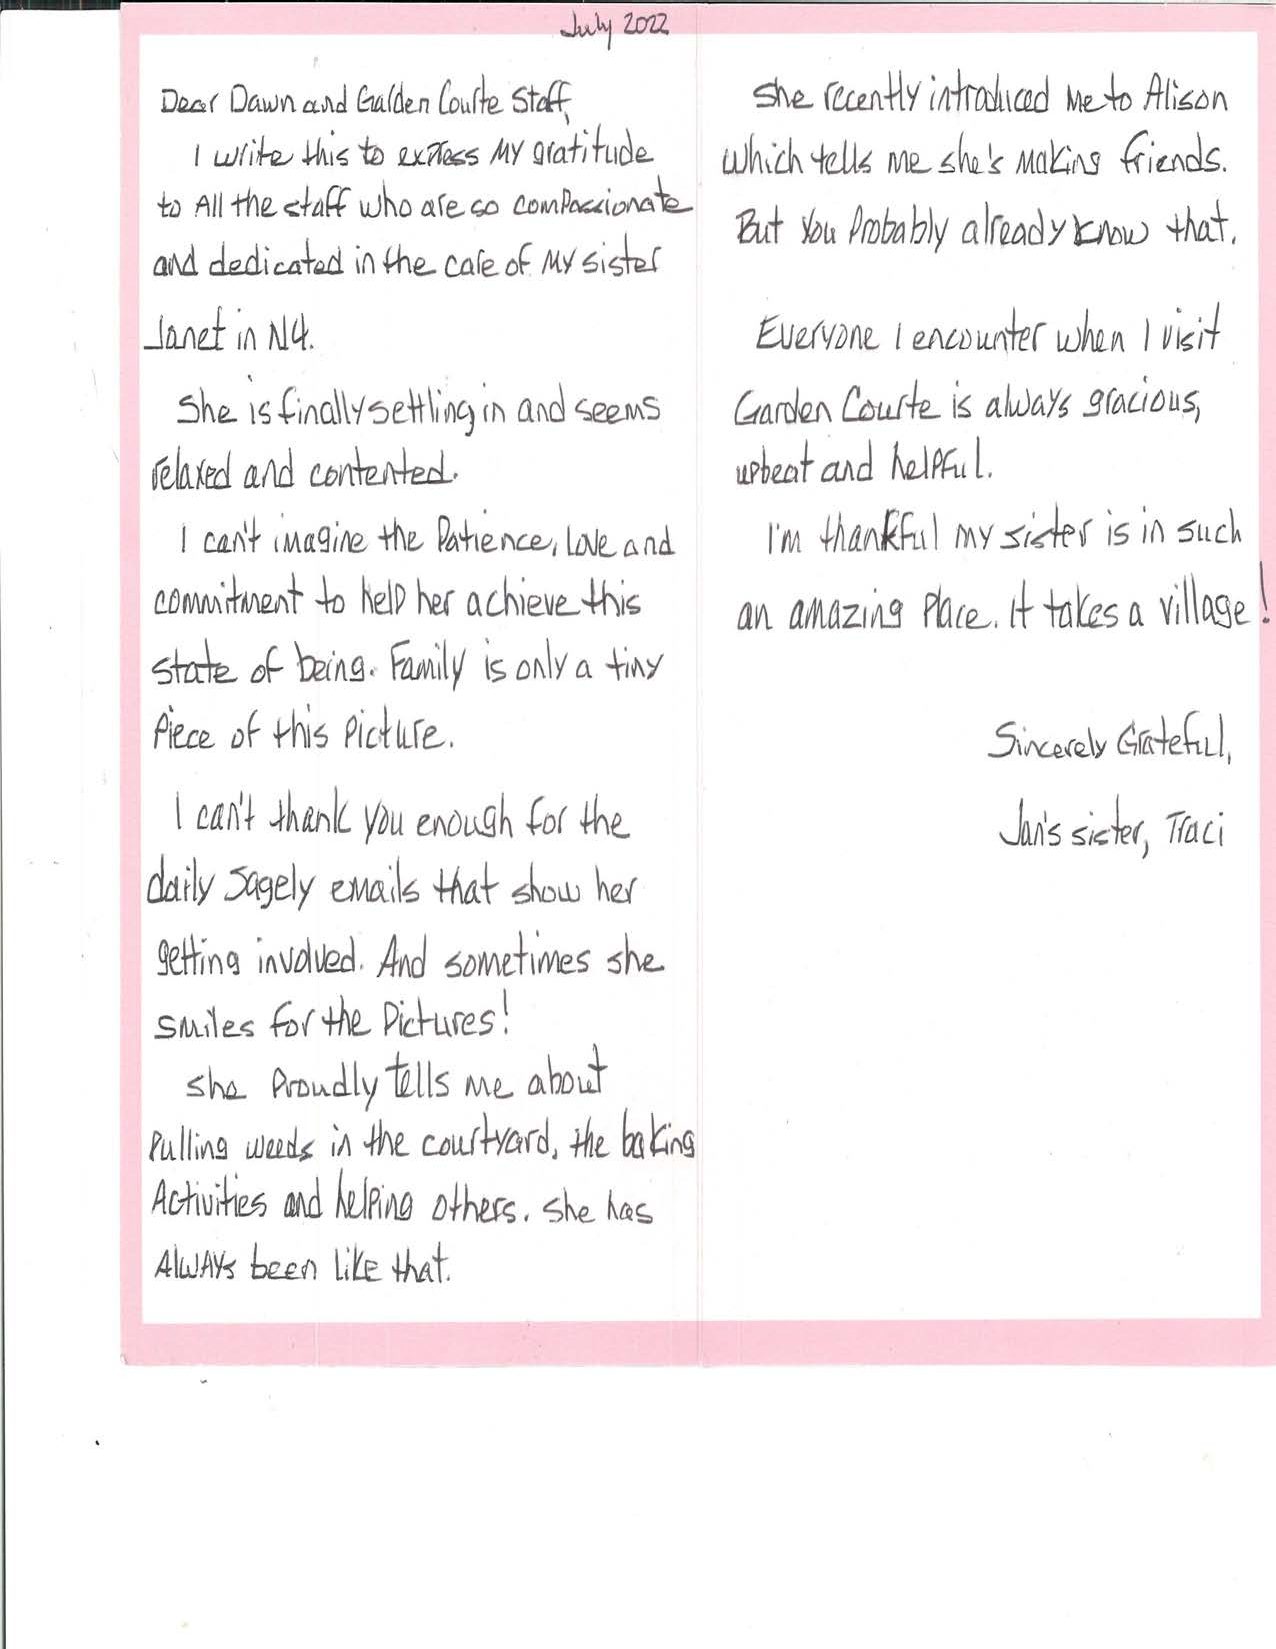 July 2022
Dear Dawn and Garden Courte Staff,
I write this to express my gratitude
to All the staff who are so compassionate
and dedicated in the care of my sister
Janet in N4.
She is finally settling in and seems
relaxed and contented.
I can't imagine the Patience, love and
commitment to help her achieve this
state of being. Family is only a tiny
Piece of this Picture.
I can't thank you enough for the
daily Sagely emails that show her
getting involved. And sometimes she
smiles for the Pictures!
She Proudly tells me about
Pulling weeds in the courtyard, the baking
Activities and helping others. She has
AlWAYs been like that.
She recently introduced me to Alison
which tells me she's making friends.
But you Probably already know that.
Everyone I encounter when I visit
Garden Courte is always gracious,
upbeat and helpful.
I'm thankful my sister is in such
an amazing Place. It takes a village!
Sincerely Grateful,
Jan's sister, Traci